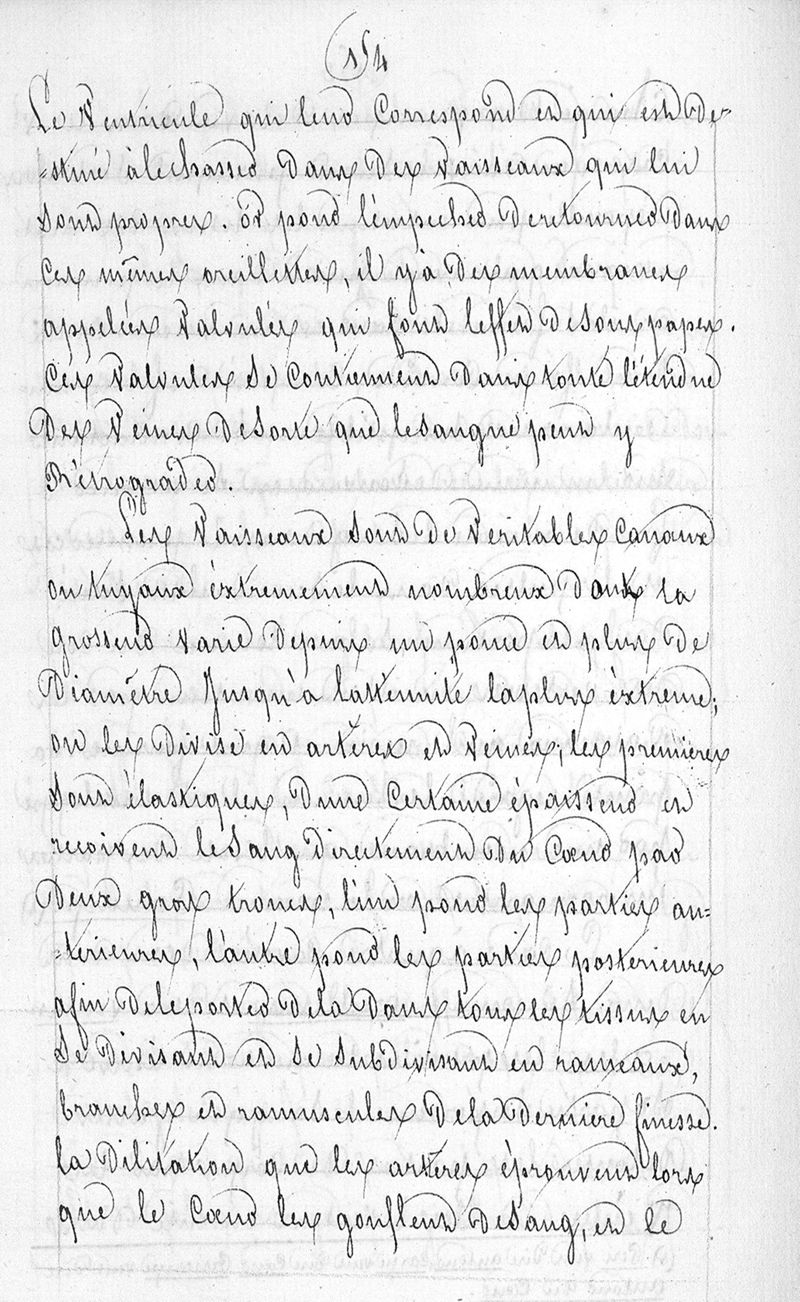 154
Le Ventricule qui leur correspond et qui est de-
-stiné à le chasser dans des Vaisseaux qui lui
sont propres. or pour l'empecher de retourner dans
ces mêmes oreillettes, il y à des membranes
appelées Valvules qui font l'effet de Soupapes.
Ces Valvules se Contiennent dans toute l'étendue
des Veines de Sorte que le Sang ne peut y
Rétrograder.
Les Vaisseaux sont de Veritables Canaux
ou tuyaux éxtremement nombreux dont la
grosseur varie depuis un pouce et plus de
Diamêtre Jusqu'à l'attenuité la plus éxtreme;
on les divise en artères et Veines; les premieres
sont élastiques, d'une Certaine épaisseur et
recoivent le Sang directement du Cœur par
Deux gros troncs, l'un pour les parties an-
-térieures, l'autre pour les parties posterieures
afin de le porter de la dans tous les tissus en
Se divisant et se Subdivisant en rameaux,
branches et ramuscules de la derniere finesse.
la Dilitation que les artères éprouvent lors
que le Cœur les gonflent de Sang, et le